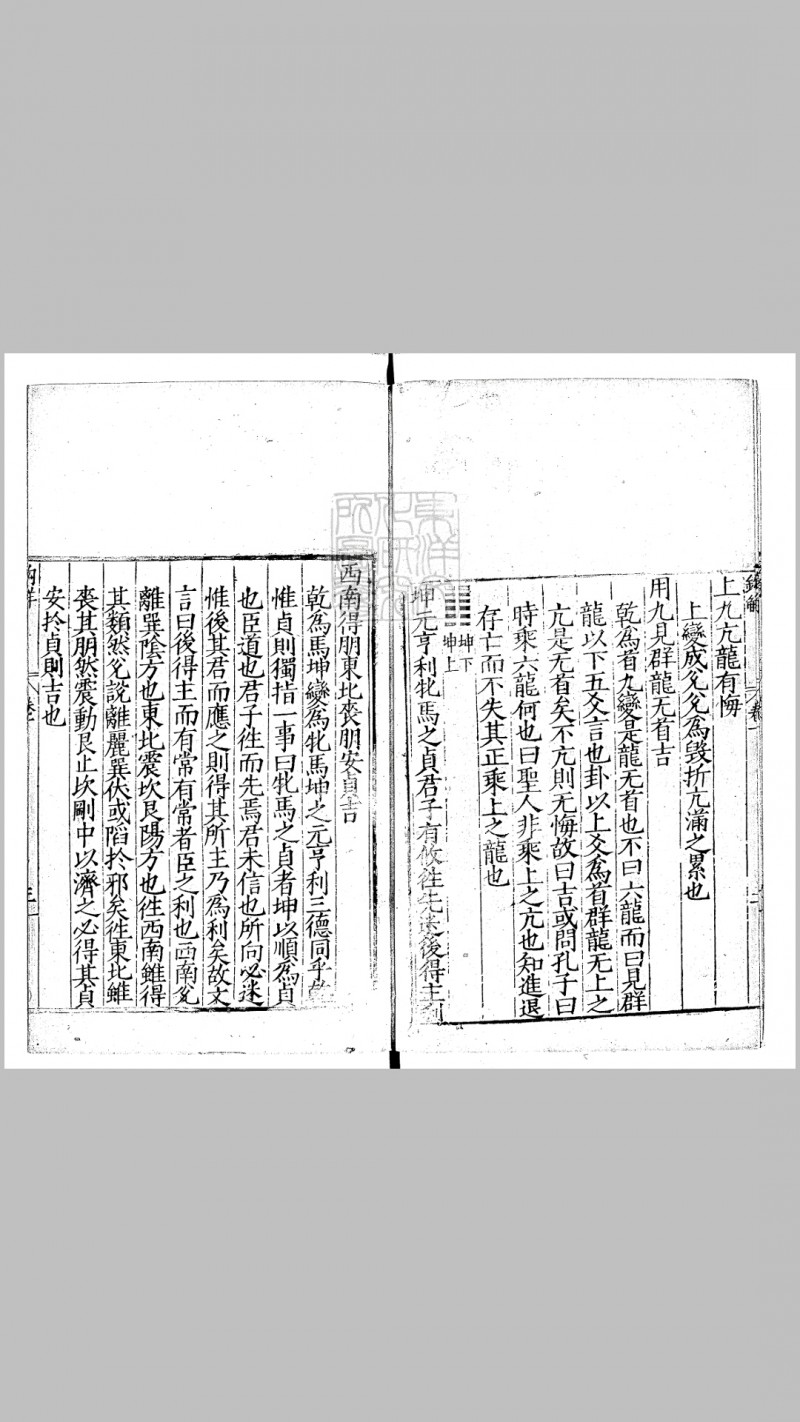 上九亢龍有悔
上變成兌兌爲毀折亢滿之累也
用九見群龍无首吉
乾爲首九變是龍无首也不曰六龍而曰見群
龍以下五爻言也卦以上爻爲首群龍无上之
亢是无首矣不亢則无悔故曰吉或問孔子曰
時乘六龍何也曰聖人非乘上之亢也知進退
存亡而不失其正乘上之龍也
坤下
坤上
坤元亨利牝馬之貞君子有攸徃先迷後得主利
西南得朋東北喪朋安貞吉
乾爲馬坤變爲牝馬坤之元亨利三德同乎乾
惟貞則獨指一事曰牝馬之貞者坤以順爲貞
也臣道也君子徃而先焉君未信也所向必迷
惟後其君而應之則得其所主乃爲利矣故文
言曰後得主而有常有常者臣之利也西南兌
離巽陰方也東北震坎艮陽方也徃西南雖得
其類然兌說離麗巽伏或陷於邪矣徃東北雖
喪其朋然震動艮止坎剛中以濟之必得其貞
安於貞則吉也